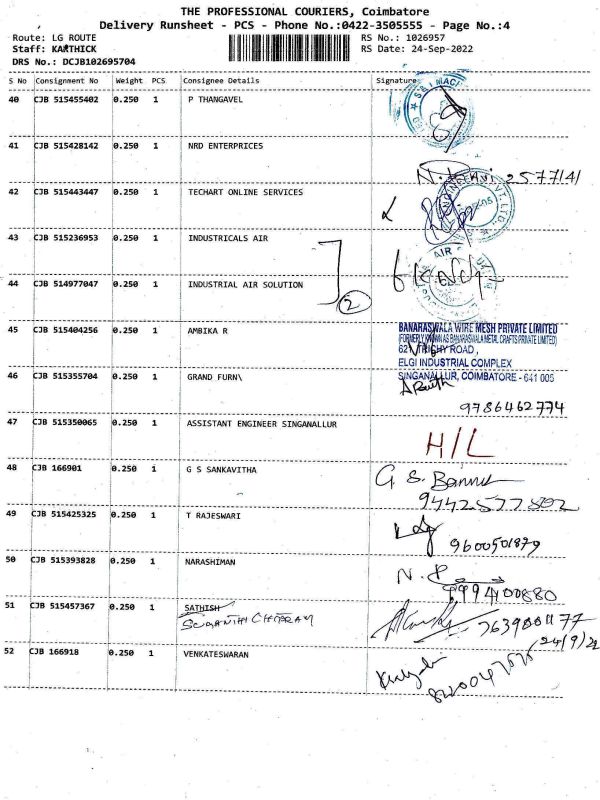 THE PROFESSIONAL COURIERS, Coimbatore
Delivery Runsheet - PCS - Phone No.:0422-3505555 - Page No.:4
Route: LG ROUTE RS No.: 1026957
Staff: KARTHICK RS Date: 24-Sep-2022
DRS No.: DCJB102695704
S No Consignment No Weight PCS Consignee Details Signature
40 CJB 515455402 0.250 1 P THANGAVEL
41 CJB 515428142 0.250 1 NRD ENTERPRICES
2577141
42 CJB 515443447 0.250 1 TECHART ONLINE SERVICES
43 CJB 515236953 0.250 1 INDUSTRICALS AIR
AIR
44 CJB 514977047 0.250 1 INDUSTRIAL AIR SOLUTION
2
45 CJB 515404256 0.250 1 AMBIKA R BANARASWALA WIRE MESH PRIVATE LIMITED
(FORMERLY KNOWN AS BANARASWALA METAL CRAFTS PRIVATE LIMITED)
621, TRICHY ROAD,
ELGI INDUSTRIAL COMPLEX
46 CJB 515355704 0.250 1 GRAND FURN\ SINGANALLUR, COIMBATORE - 641 005
9786462774
47 CJB 515350065 0.250 1 ASSISTANT ENGINEER SINGANALLUR
H/L
48 CJB 166901 0.250 1 G S SANKAVITHA G S.
9442577502
49 CJB 515425325 0.250 1 T RAJESWARI
9600501879
50 CJB 515393828 0.250 1 NARASHIMAN N. P
9994100880
51 CJB 515457367 0.250 1 SATHISH
7639001177
24/9/22
52 CJB 166918 0.250 1 VENKATESWARAN